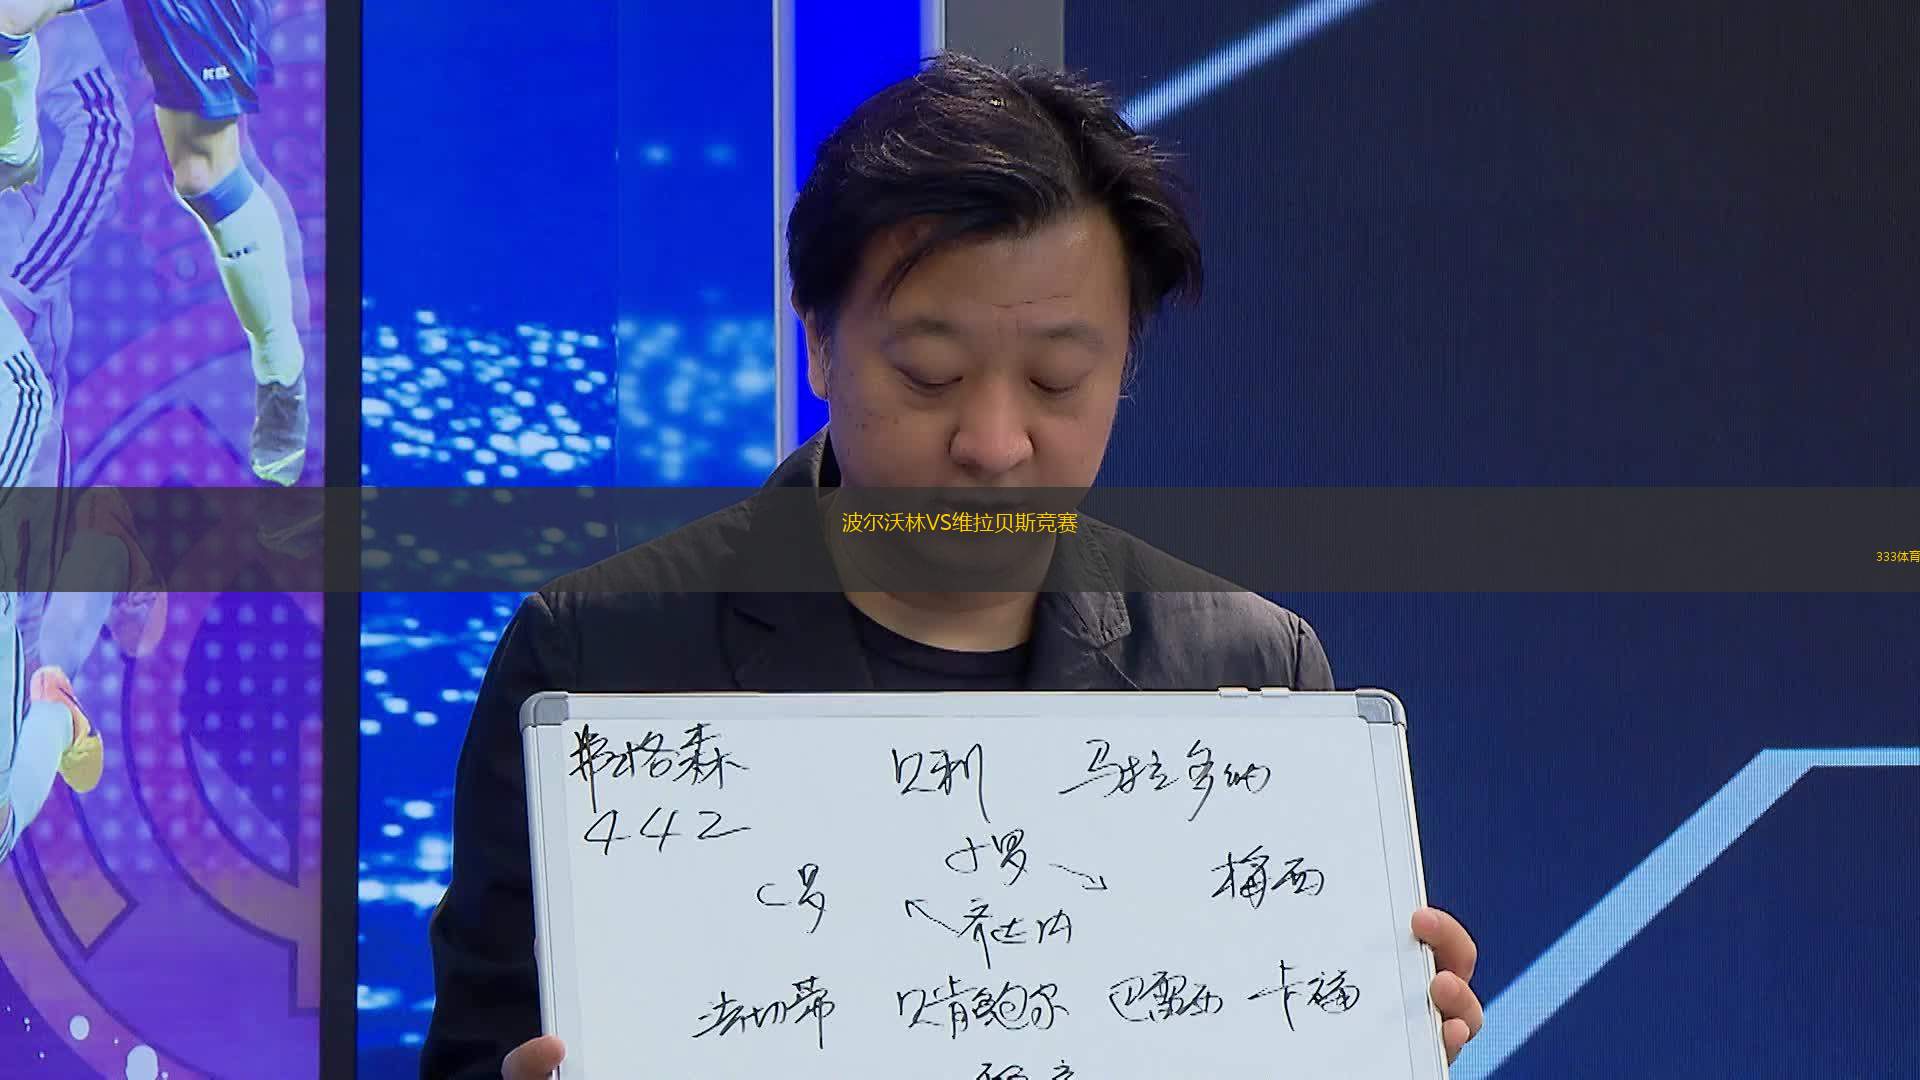 波尔沃林VS维拉贝斯竞赛
333体育
弗格森 贝利 马拉多纳
442
小罗
C罗 梅西
齐达内
法切蒂 贝肯鲍尔 巴雷西 卡福